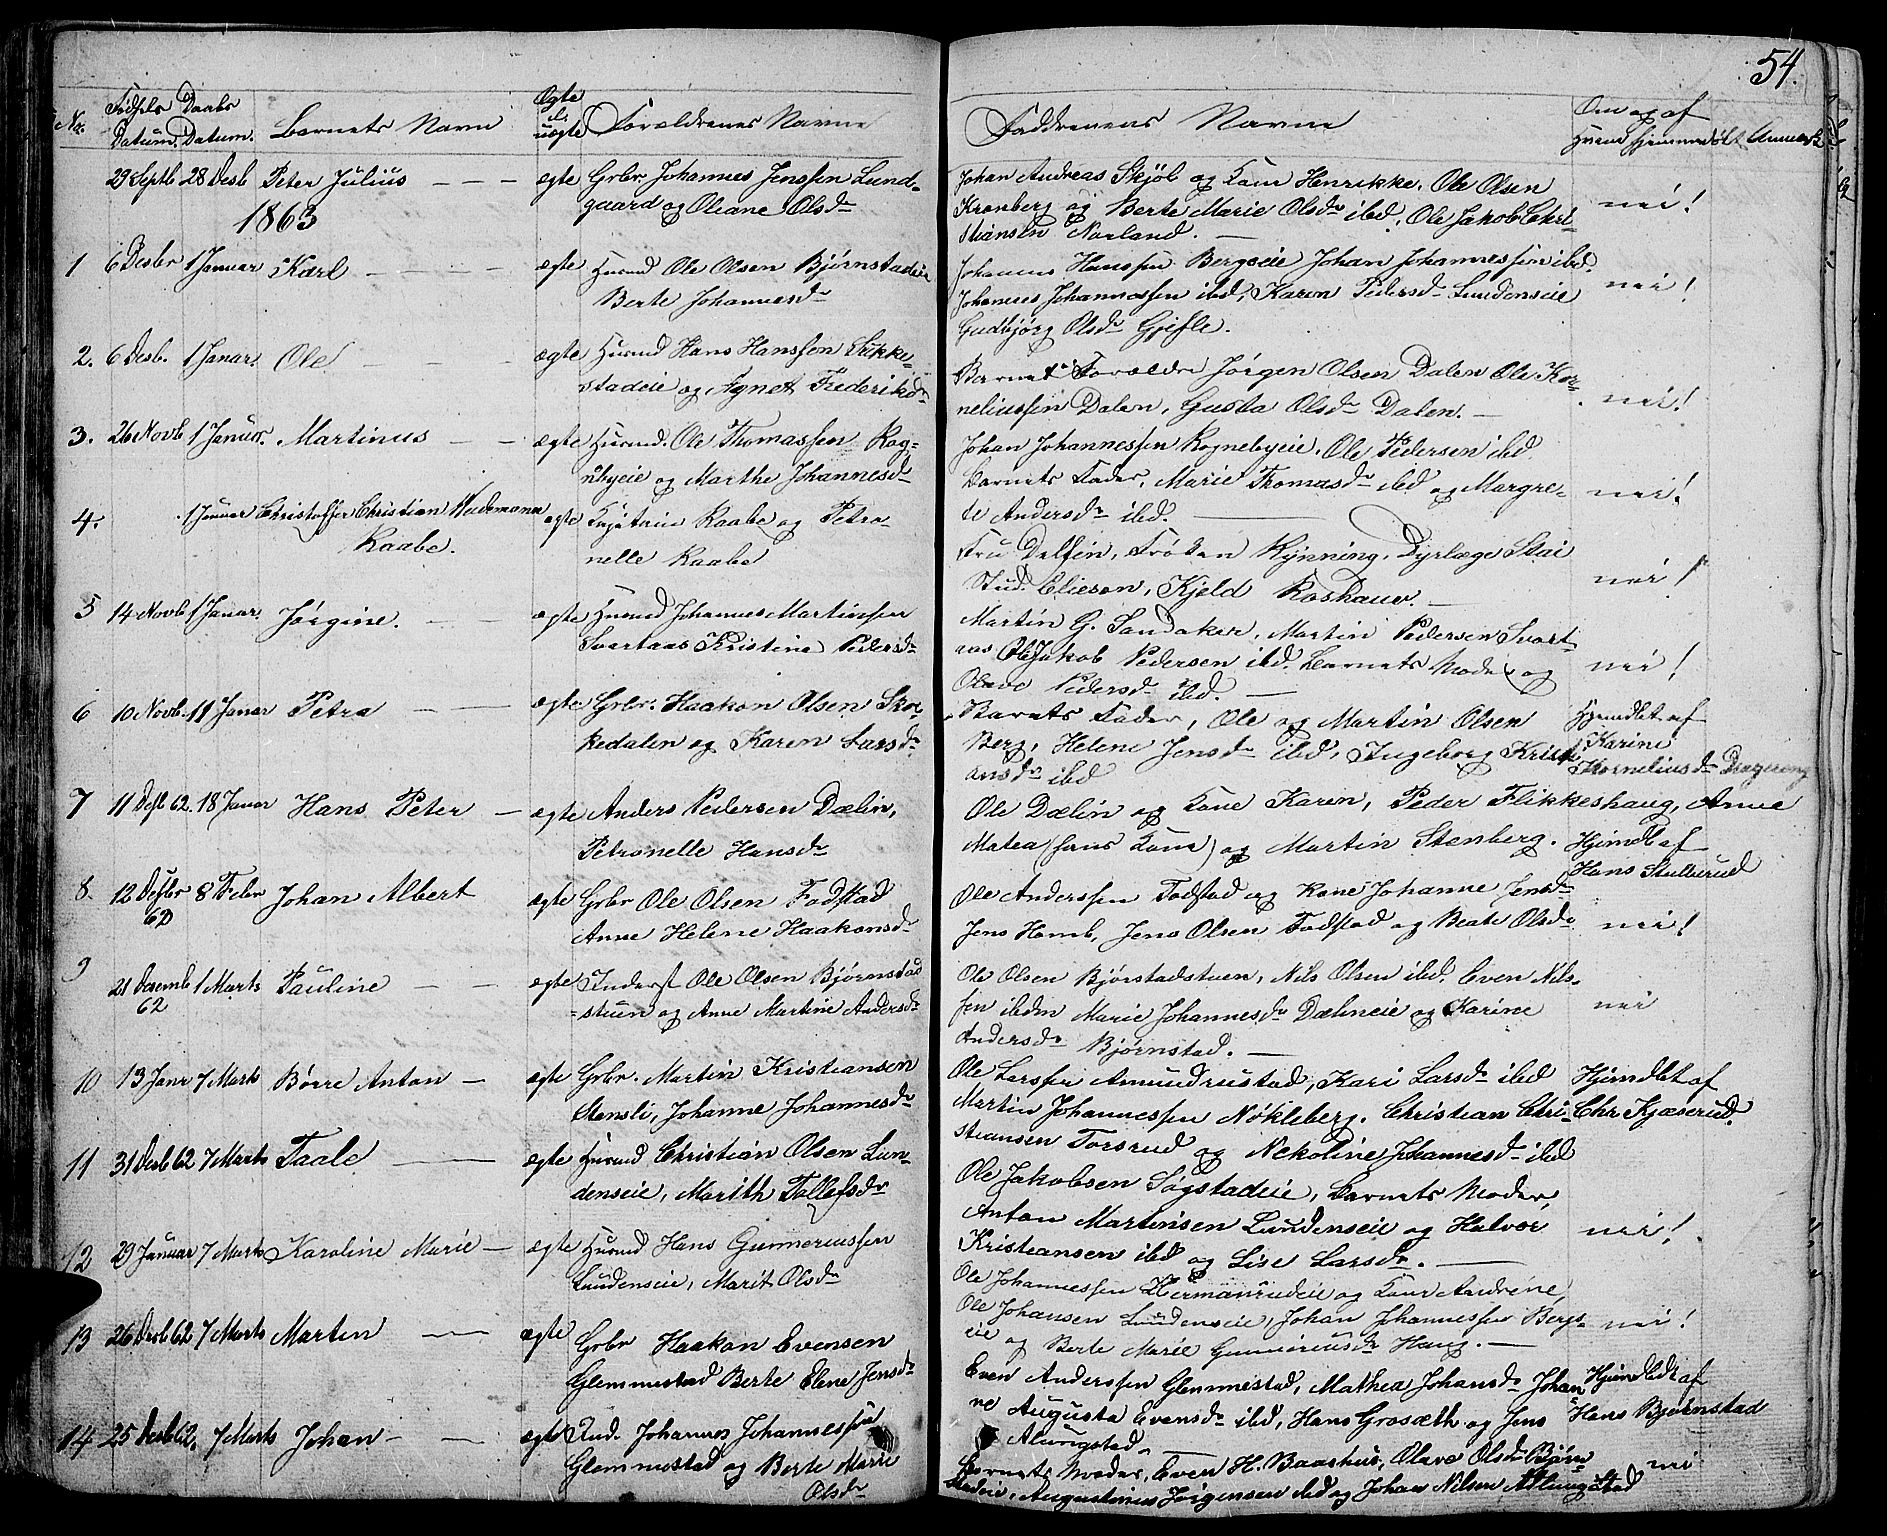 54.
No. Fødsels Datum. Daabs Datum. Barnets Navn Ægte el. uægte Forældrenes Navne
Faddrenes Navne Om og af Hvem hjemmedøbt Anmerk
29 Septb 28 Desb Peter Julius — — — ægte Grbr. Johannes Jenssen Lund-
gaard og Oliane Olsdr
Johan Andreas Skjøl og Kone Henrikke. Ole Olsen
Kronberg og Berte Marie Olsdr ibd, Ole Jakob Chri-
stiansen Norland. — nei!
1863
1 6 Desbr 1 Januar Karl — — — — ægte Husmd Ole Olsen Bjørnstadeie
Berte Johannesdr
Johannes Hanssen Bergseie Johan Johannessen ibd.
Johannes Johannessen ibd, Karen Pedersdr Lundenseie nei!
Gudbjørg Olsdr Gjefle.
2. 6 Desb. 1 Janar. Ole — — — ægte Husmd Hans Hanssen Sikke-
stadeie og Agnet Frederiksdr
Barnets Forældre Jørgen Olsen Dalen Ole Kor-
neliussen Dalen, Gusta Olsdr Dalen. — nei!
3. 26 Novb 1 Januar. Martinus — — ægte Husmd. Ole Thomassen Rog-
nbyeie og Marthe Johannesdr
Johan Johannessen Rognebyeie. Ole Pedersen ibd
Barnets Fader, Marie Thomasdr ibd og Margre- nei!
te Andersdr ibd. —
4. 1 Januar Christoffer Christian Weidemann ægte Raabe og Petro-
Raabe. nelle Raabe
Fru Delfin, Frøken Rynning, Dyrlæge Stai
Stud. Eliesen, Kjeld Roshauw. — nei!
5 14 Novb 1 Janar. Jørgine. — — ægte Husmd Johannes Martinsen
Svartaas Kristine Pedersdr
Martin G. Sandaker, Martin Pedersen Svart-
aas Ole Jakob Pedersen ibd. Barnets Moder og nei!
Olave Pedersdr ibd. —
6 10 Novb. 11 Janar Petra — — ægte Grbr. Haakon Olsen Skor-
kedalen og Karen Larsdr
Barnets Fader, Ole og Martin Olsen Hjemdbt af
Berg, Helene Jensdr ibd, Ingeborg Kristi- Karine
ansdr ibd Korneliusdr
7 11 Desb 62. 18 Janar Hans Peter — ægte Anders Pedersen Dælin,
Petronelle Hansdr
Ole Dælin og Kone Karen, Peder Flikkeshaug, Anne
Matea (hans Kone) og Martin Stenberg. Hjemdbt af
Hans Stulberud
8. 12 Desbr 62 8 Febr Johan Albert ægte Grbr Ole Olsen Fodstad
Anne Helene Haakonsdr
Ole Anderssen Fodstad og Kone Johanne Jensdr
Jens Homb, Jens Olsen Fodstad og Beate Olsdr nei!
9 21 Desemb 62 1 Marts Pauline — — ægte Inderst Ole Olsen Bjørnstad
=stuen og Anne Martine Andersdr
Ole Olsen Bjørstadstuen, Nils Olsen ibd. Even Nils-
sen ibdm Marie Johannesdr Dælineie og Karine nei
Andersdr Bjørnstad. —
10 13 Janr 7 Marts Børre Anton — ægte Grbr. Martin Kristiansen
Stensli, Johanne Johannesdr
Ole Larssen Amundrustad, Kari Larsdr ibd Hjemdbt af
Martin Johannessen Nøkleberg. Christian Chri- Chr Kjæserud.
stiansen Torsrud og Nekoline Johannesdr ibd
11 31 Desb 62 7 Marts Taale — — ægte Husmd Christian Olsen Lun-
denseie, Marith Tollefsdr
Ole Jakobsen Søgstadeie, Barnets Moder,
Anton Martinsen Lundenseie og Halvor nei!
Kristiansen ibd og Lise Larsdr. —
12 29 Januar 7 Marts Karoline Marie — ægte Husmd Hans Gunneriussen
Lundenseie, Marit Olsdr
Ole Johannessen Hermanrudeie og Kone Andrine,
Ole Johansen Lundenseie, Johan Johannessen Bergs- nei!
eie og Berte Marie Gunneriusdr Haug. —
13 26 Desb 62 7 Marts Martin — ægte Grbr Haakon Evensen
Glemmestad Berte Elene Jensdr
Even Anderssen Glemmestad, Mathea Johansdr Johan- Hjemdbt af
ne Augusta Evensdr ibd, Hans Grosæth og Jens Hans Bjørnstad
Alungstad. —
14 25 Desb 62. 7 Marts Johan — — ægte Ind. Johannes Johannessen
Glemmestad og Berte Marie
Olsdr
Barnets Moder, Even H. Baashus, Olave Olsdr Bjørn- nei
stadeie, Augustinius Jørgensen ibd og Johan Nilsen Alungstad